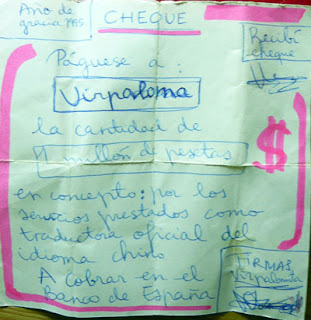 Año de
gracia 1985
CHEQUE
Recibí
cheque
Páguese a:
Virpaloma
la cantidad de
1 millón de pesetas
$
en concepto: por los
servicios prestados como
traductora oficial del
idioma chino
A cobrar en el
Banco de España
FIRMAS
Virpalomita